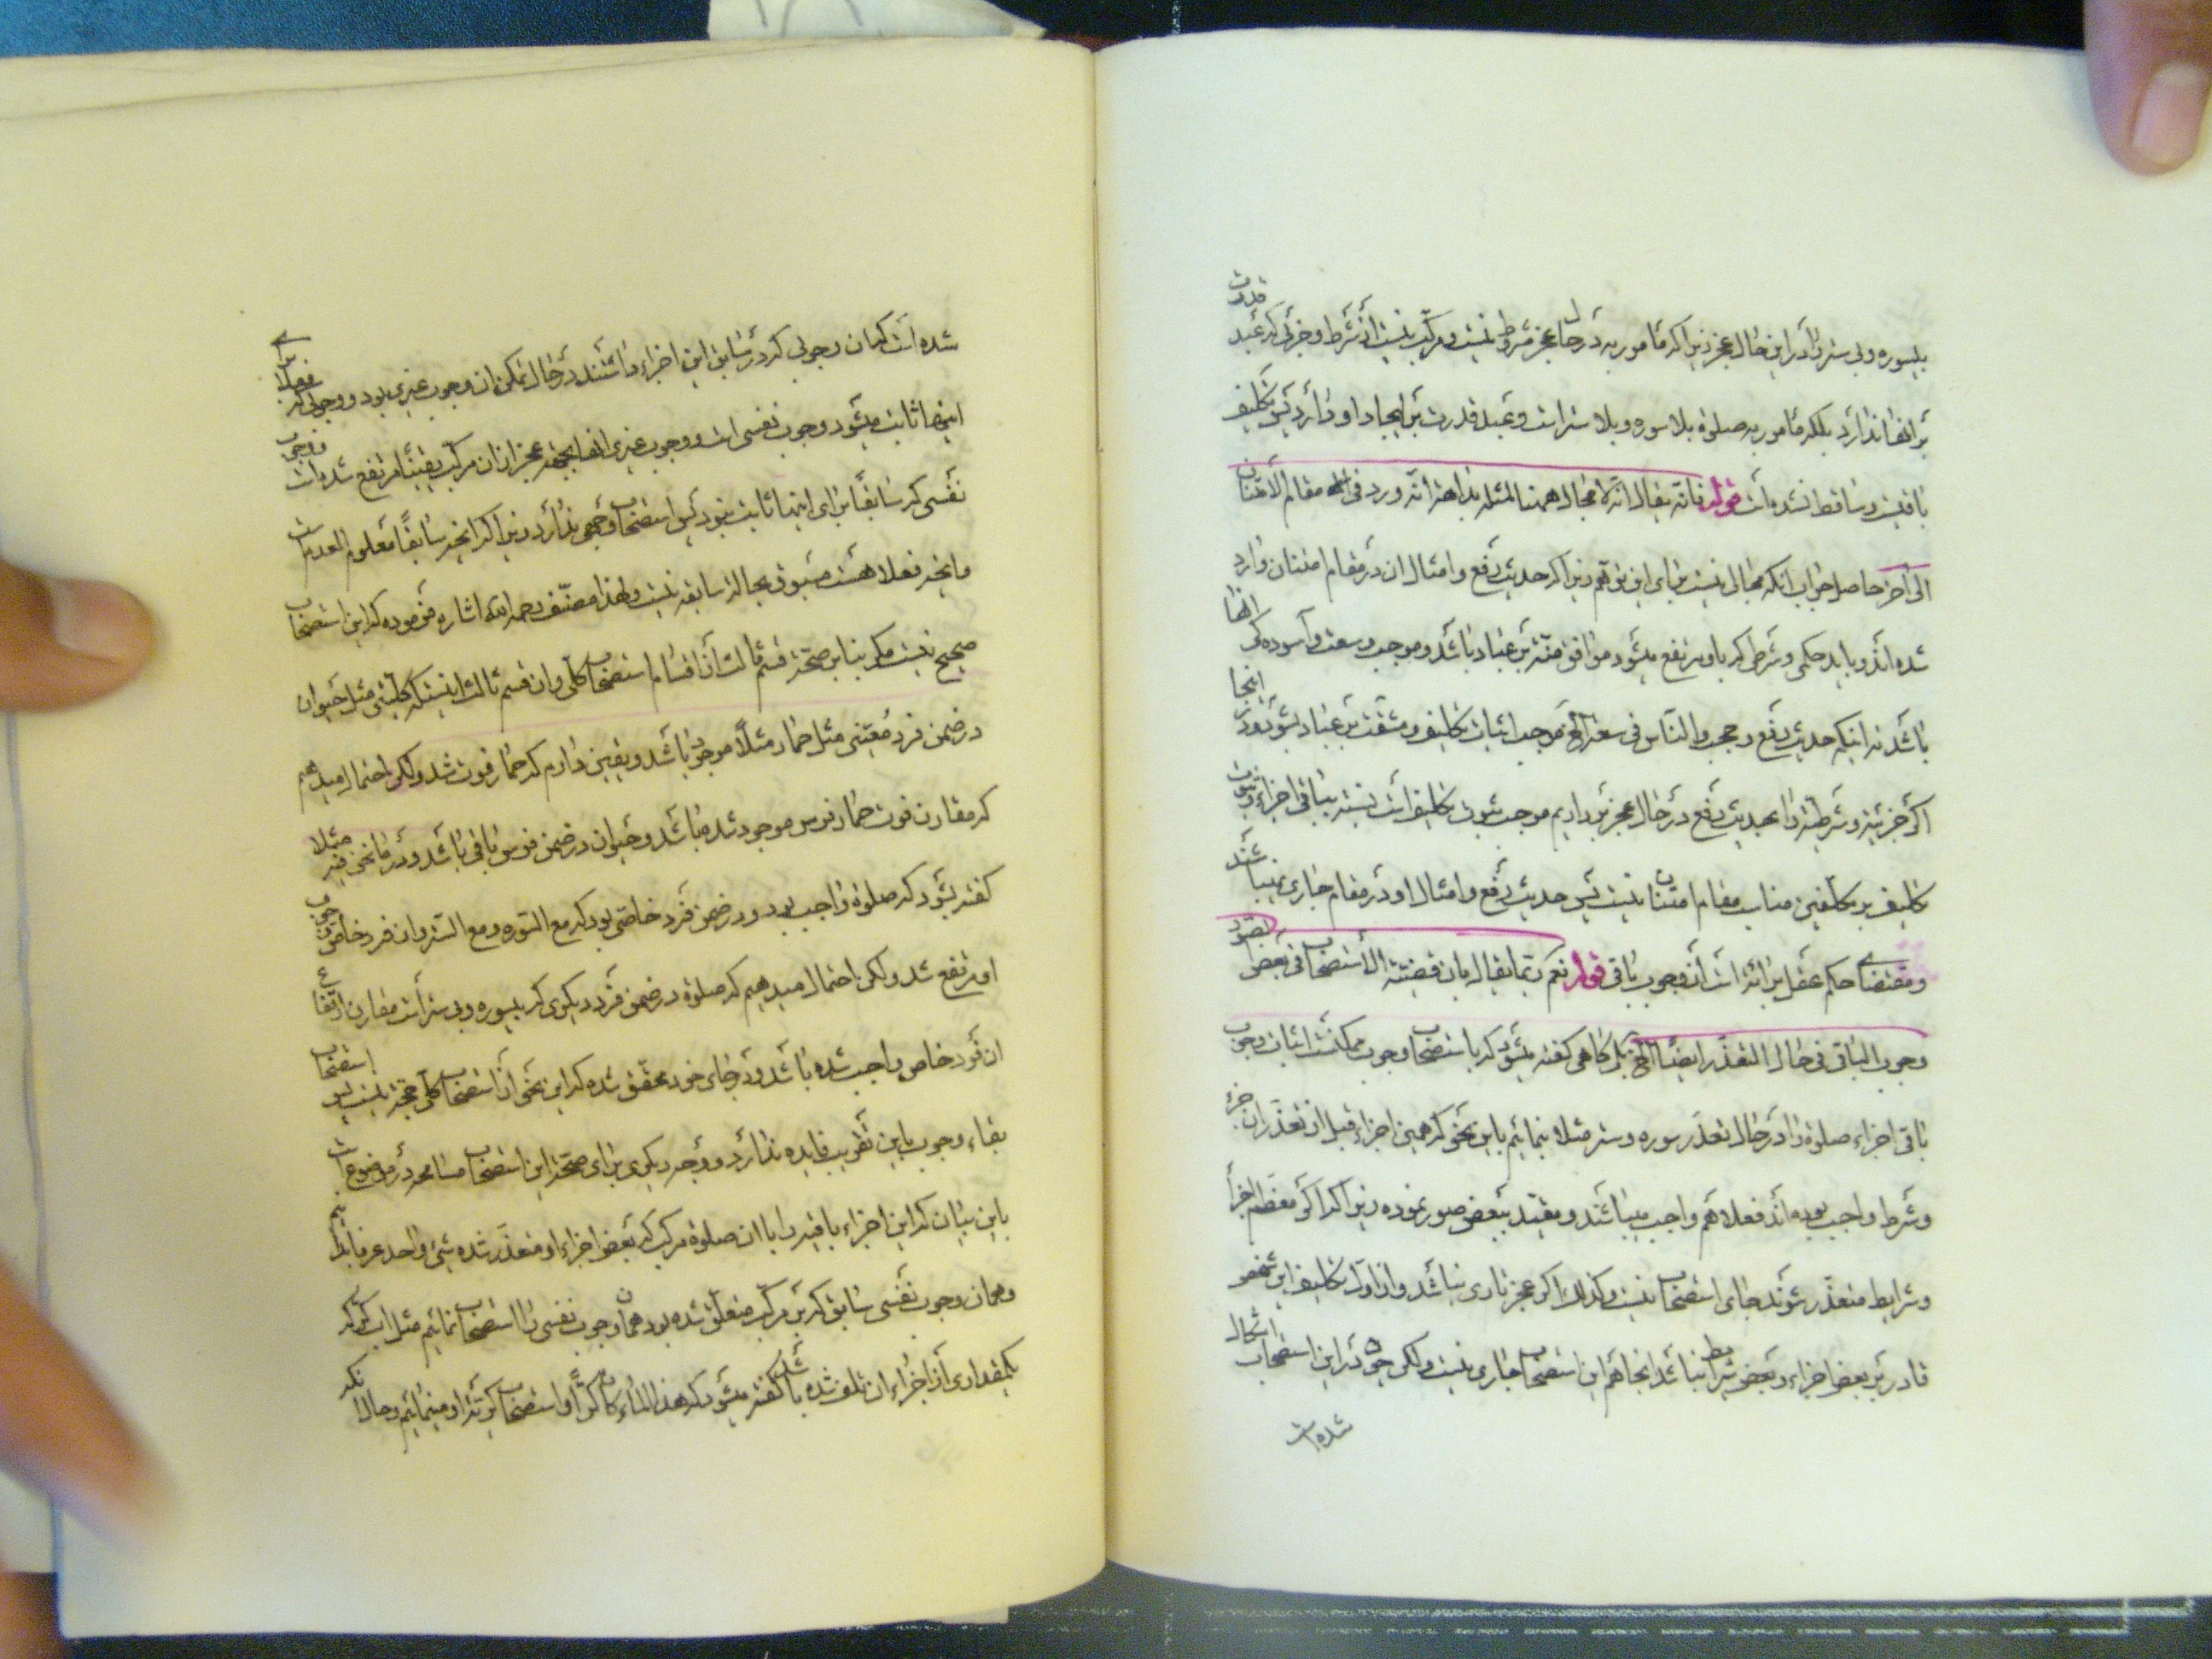 بیسوره و بی ستر را در این حال عجز زیرا که مامور به در حال عجز مشروط نیست و مرکب نیست از شرط و جزئی که عبد قدرت
بر انها ندارد بلکه مامور به صلوة بلا سوره و بلا ستر است و عبد قدرت بر ایجاد او دارد پس تکلیف
باقیست و ساقط نشده است قوله فانه یقال انه لا مجال ههنا لمثله بداهة انه ورد فی مقام الامتنان
الی اخر حاصل جواب انکه مجالی نیست برای این توهم زیرا که حدیث رفع و امثال ان در مقام امتنان وارد
شده اند و باید حکمی و شرطی که باو مرتفع میشود موافق منّت بر عباد باشد و موجب وسعت و آسوده گی انها
باشد نه اینکه حدیث رفع و حجب و الناس فی سعة الخ موجب اثبات تکلیف و مشقت بر عباد بشود و در اینجا
اگر جزئیة و شرطیة را بحدیث رفع در حال عجز برداریم موجب ثبوت تکلیف است نسبت بباقی اجزاء و ثبوت
تکلیف بر مکلفین مناسب مقام امتنان نیست پس حدیث رفع و امثال او در مقام جاری نمیباشند
و مقتضای حکم عقل برائة است از وجوب باقی قوله نعم ربما یقال بان قضیة الاستصحاب فی بعض الصور
وجوب الباقی فی حال التعذر ایضا الخ بلی گاهی گفته میشود که باستصحاب وجوب ممکنست اثبات وجوب
باقی اجزاء صلوة را در حال تعذر سوره و ستر مثلا بنمائیم باین نحو که همین اجزاء قبل از تعذر ان جزء
و شرط واجب بوده اند فعلا هم واجب میباشند و مقید ببعض صور نموده زیرا که اگر معظم اجزا
و شرایط متعذر شوند جای استصحاب نیست و کذلک اگر عجز طاری نباشد و از اول تکلیف این شخص
قادر بر بعض اجزاء و بعض شرایط نباشد انجا هم این استصحاب جاری نیست ولکن چون در این استصحاب اشکال
شده است
شده است که ان وجوبی که در سابق این اجزاء داشتند در حال تمکن ان وجوب غیری بود و وجوبی که فعلا برای
اینها ثابت میشود وجوب نفسی است و وجوب غیری انها بجهة عجز از ان مرکب یقینا مرتفع شده است و وجوب
نفسی که سابقا برای اینها ثابت نبود پس استصحاب وجهی ندارد زیرا که انچه سابقا معلوم العدم است
و انچه فعلا هست مسبوق بحالة سابقه نیست و لهذا مصنّف رحمه الله اشاره فرموده که این استصحاب
صحیح نیست مگر بنابر صحّة قسم ثالث از اقسام استصحاب کلی و ان قسم ثالث اینست که کلیتی مثل حیوان
در ضمن فرد معینی مثل حمار مثلا موجود باشد و یقین دارم که حمار فوت شد ولکن احتمال میدهم
که مقارن فوت حمار فرس موجود شده باشد و حیوان در ضمن فرس باقی باشد و در ما نحن فیه مثلا
گفته بشود که صلوة واجب بود و در ضمن فرد خاصی بود که مع السوره و مع الستر و ان فرد خاص وجوب
او مرتفع شد ولکن احتمال میدهیم که صلوة در ضمن فرد دیگری که بیسوره و بی ستر است مقارن ارتفاع
ان فرد خاص واجب شده باشد و در جای خود محقق شده که این نحو از استصحاب کلی حجة نیست پس استصحاب
بقاء وجوب باین تقریب فایده ندارد و وجه دیگری برای صحة این استصحاب مسامحه در موضوع است
باین بیان که این اجزاء باقیه را با ان صلوة مرکب که بعض اجزاء او متعذر شده شیئ واحد عرفا بدانیم
و همان وجوب نفسی سابق که بر مرکب متعلق شده بود همان وجوب نفسی را استصحاب نمائیم مثل اب کری که
یکمقداری از اجزاء ان تلف شده باشد گفته میشود که هذا الماء کان کرّا و استصحاب کریّة او مینمائیم و حال انکه